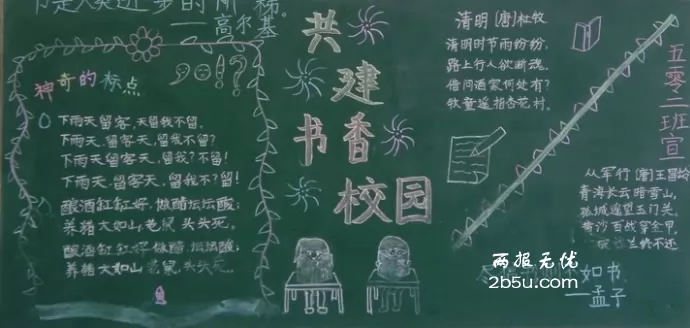 书是人类进步的阶梯。
——高尔基
神奇的标点
，。！？
下雨天留客，天留我不留。
下雨天，留客天，留我不留？
下雨天，留客天，留我？不留！
下雨天，留客天，留我不？留！
酿酒缸缸好，做醋坛坛酸；
养猪大如山，老鼠头头死。
酿酒缸缸好，做醋坛坛酸；
养猪大如山老鼠，头头死。
共建
书香
校园
清明 [唐]杜牧
清明时节雨纷纷，
路上行人欲断魂。
借问酒家何处有？
牧童遥指杏花村。
五零二班宣
从军行 [唐]王昌龄
青海长云暗雪山，
孤城遥望玉门关。
黄沙百战穿金甲，
不破楼兰终不还
尽信书则不如书
——孟子
两报无忧
2b5u.com